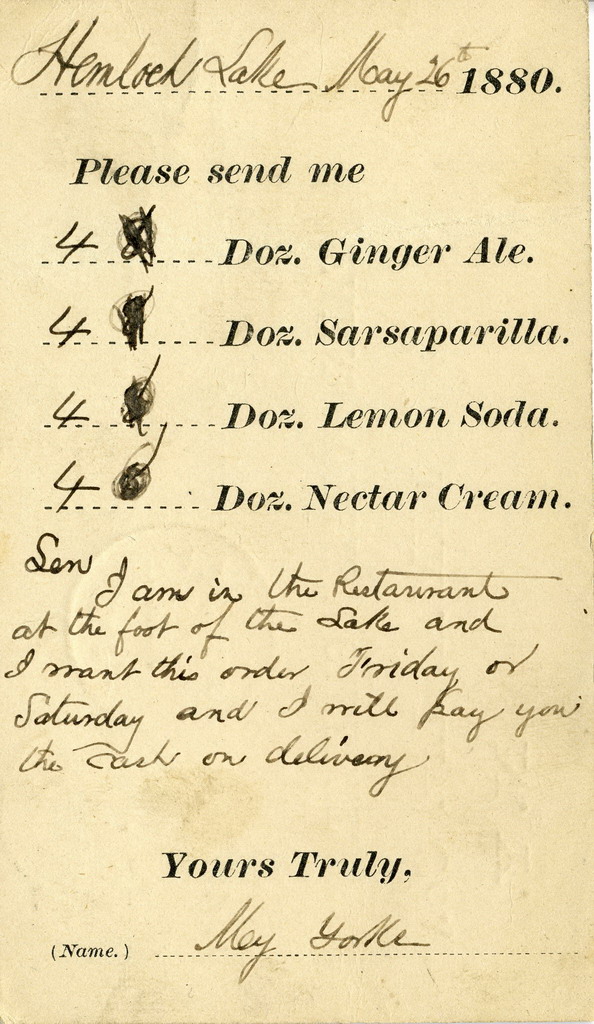 Hemlock Lake May 26th 1880.
Please send me
4 Doz. Ginger Ale.
4 Doz. Sarsaparilla.
4 Doz. Lemon Soda.
4 Doz. Nectar Cream.
I am in the Restaurant
at the foot of the Lake and
I want this order Friday or
Saturday and I will pay you
the cash on delivery
Yours Truly,
(Name.)